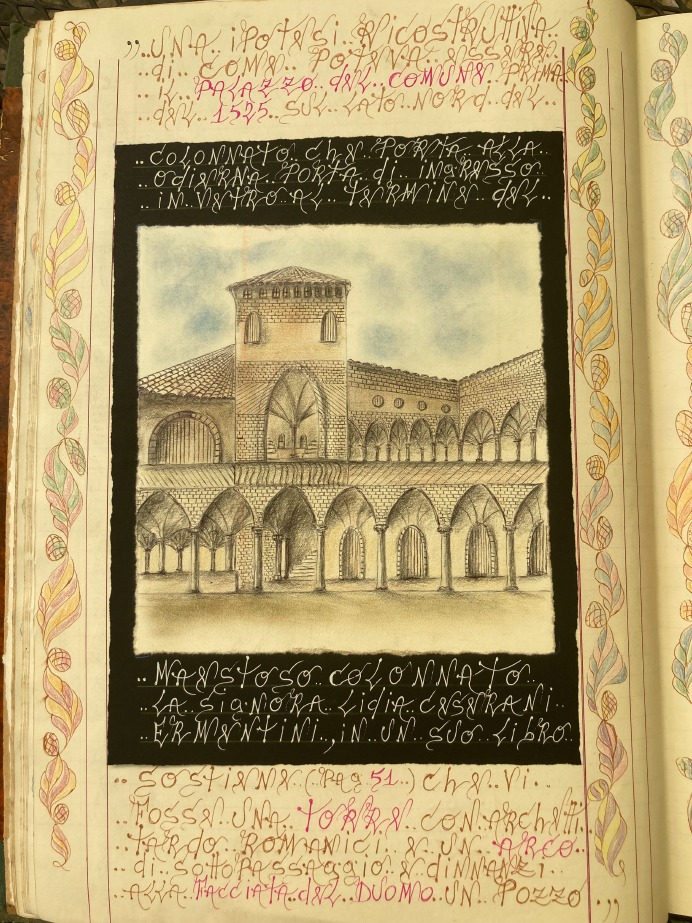 ,, ..UNA.. iPOTESI.. RiCOSTRUTTiVA..
..di.. COME.. POTEVA.. ESSERE..
..iL.. PALAZZO.. dEL.. COMUNE.. PRIMA..
..dEL.. 1525.. SUL.. LATO NORd.. dEL..
..COLONNATO.. ChE.. PORTA.. ALLA..
..OdiERNA.. PORTA.. di.. iNgRESSO..
..iN VETRO AL.. TERMiNE.. dEL..
..MAESTOSO.. COLONNATO..
..LA.. SigNORA.. LidiA.. CESERANi..
..ERMENTiNi.., iN.. UN.. SUO.. LibRO..
..SOSTiENE.. (PAg.. 51..) ChE.. Vi..
..FOSSE.. UNA.. TORRE.. CON.. ARChETTi..
..TARdO.. ROMANiCi.. E.. UN.. ARCO..
..di.. SOTTOPASSAggiO.. E.. diNNANZi..
..ALLA.. FACCiATA.. dEL.. DUOMO.. UN.. POZZO.. ,,